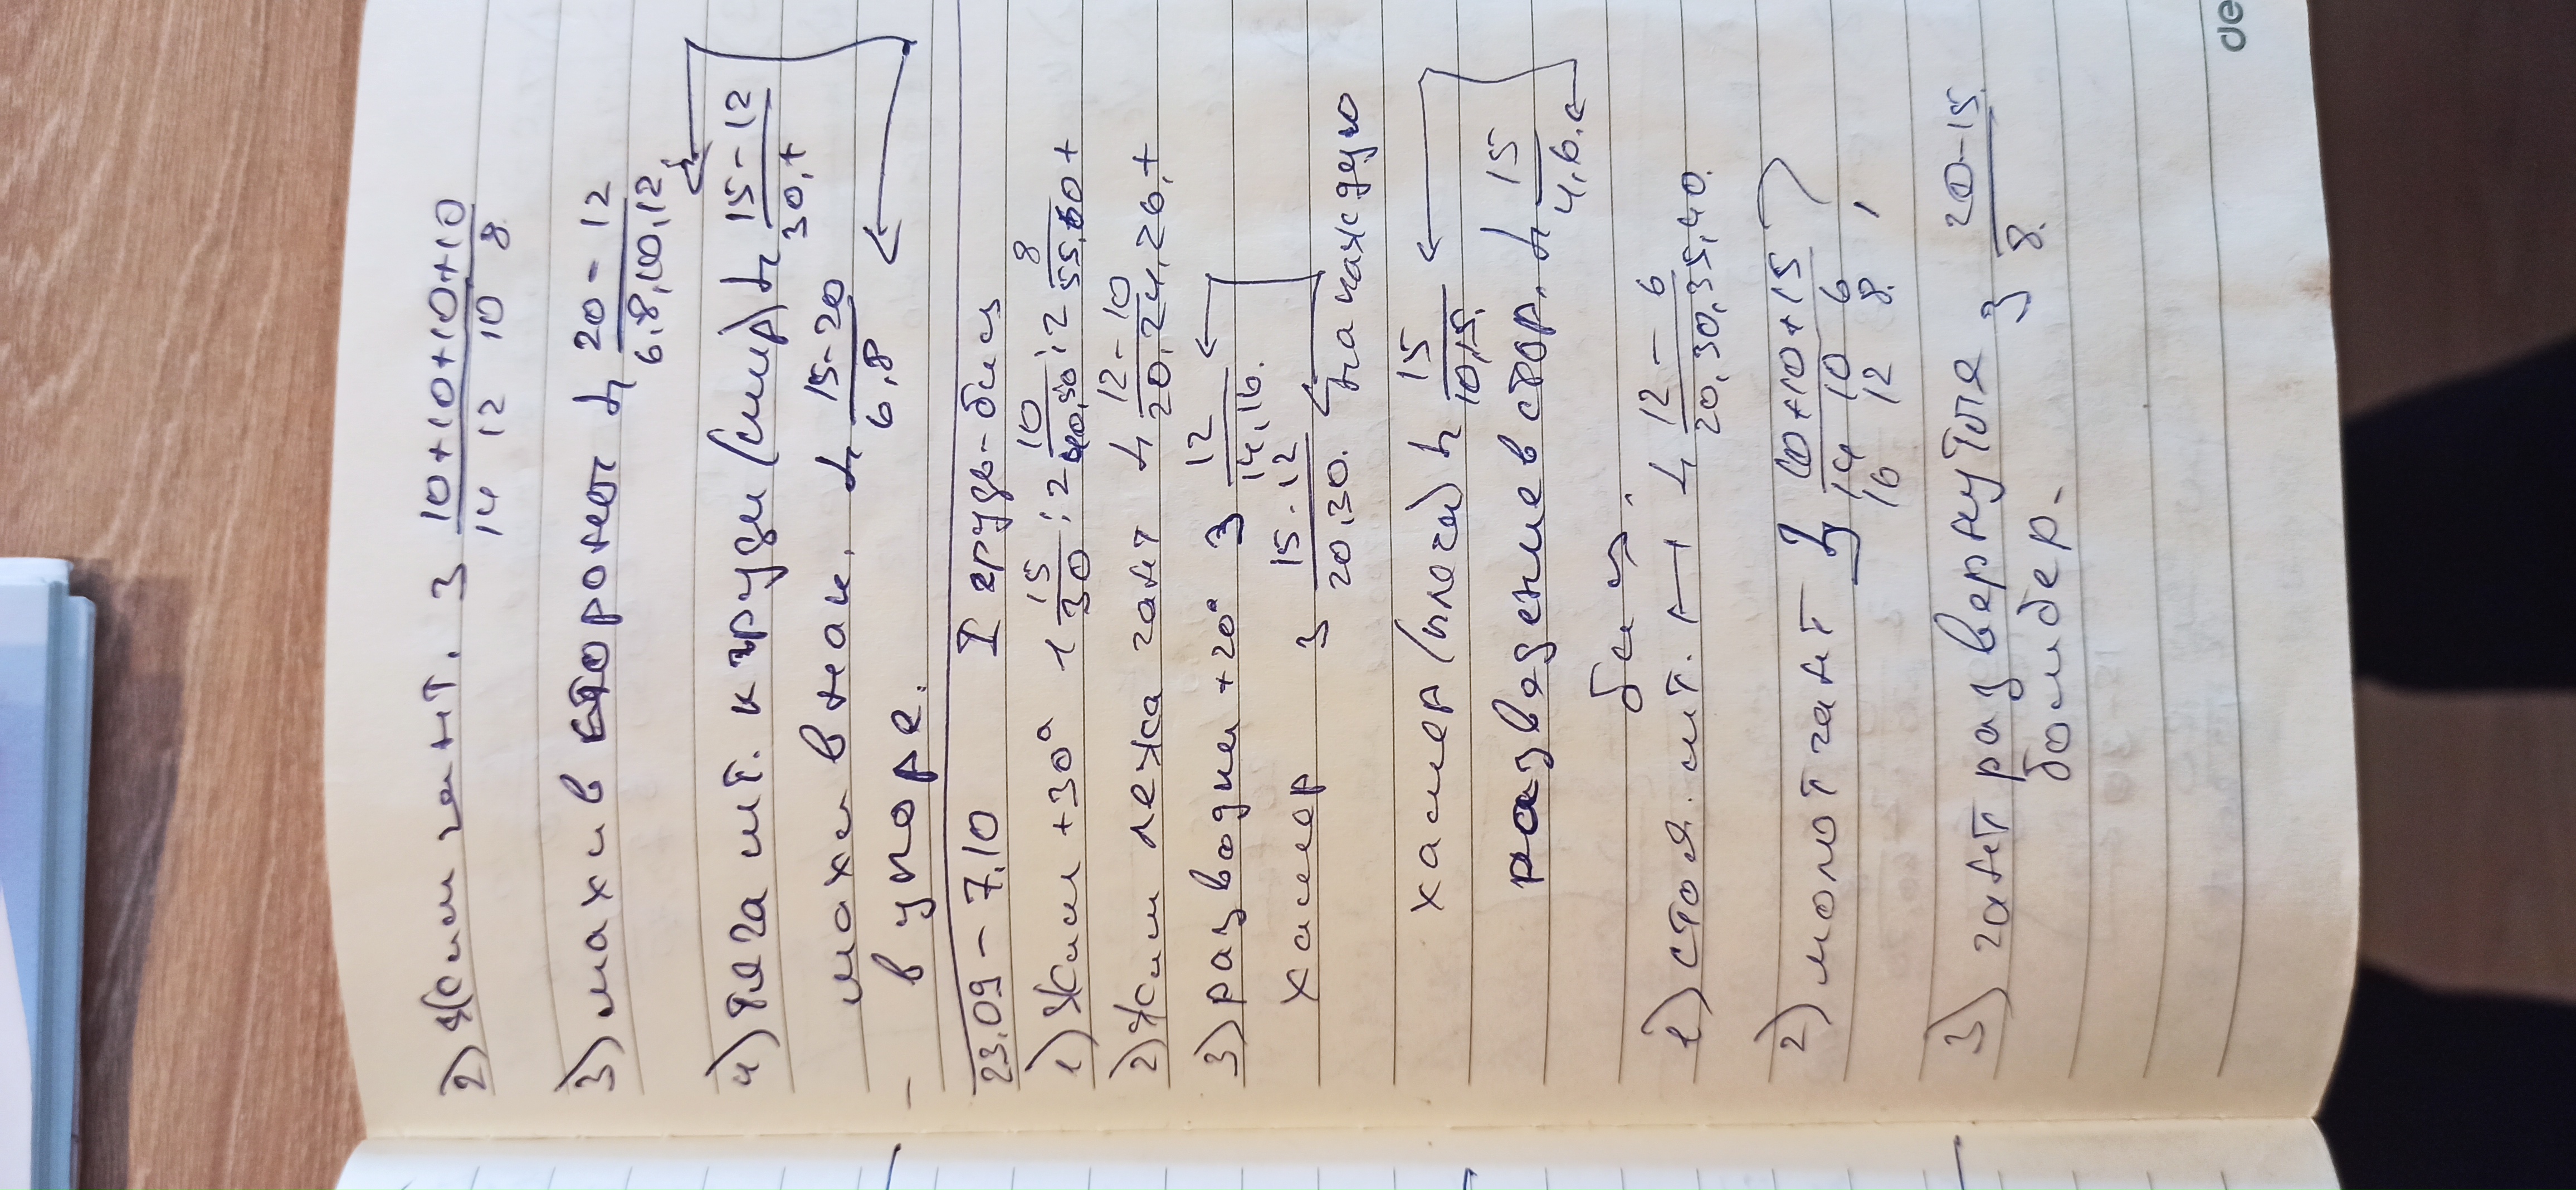 2) Жим гант. 3 10+10+10+10
14 12 10 8
3) махи в стороны 4 20-12
6,8,10,12
4) тяга шт. к груди (смит) 4 15-12
30,+
махи в накл. 4 15-20
6,8
- в упоре.
23.09-7.10 I грудь-бицы
1) Жим +30° 1 15
30; 2 10
40,50; 2 8
55,60+
2) Жим лежа гант 4 12-10
20,24,26,+
3) разводки +20° 3 12
14,16.
хаммер 3 15-12
20,30. на каждую
хаммер (плечи) 4 15
10,15.
разведение в стор. 4 15
4,6.
биц.
1) стоя. шт. 4 12-6
20,30,35,40.
2) молот гант 3 10+10+15
14 10 6
16 12 8
3) гант развернутая 3 20-15
8.
de